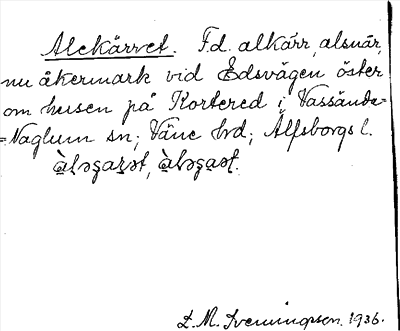 Alekärret. F.d. alkärr, alsnår,
nu åkermark vid Edsvägen öster
om husen på Kortered i Vassända-
=Naglum sn; Väne hrd; Älfsborgs l.
L. M. Svenungsson. 1936.